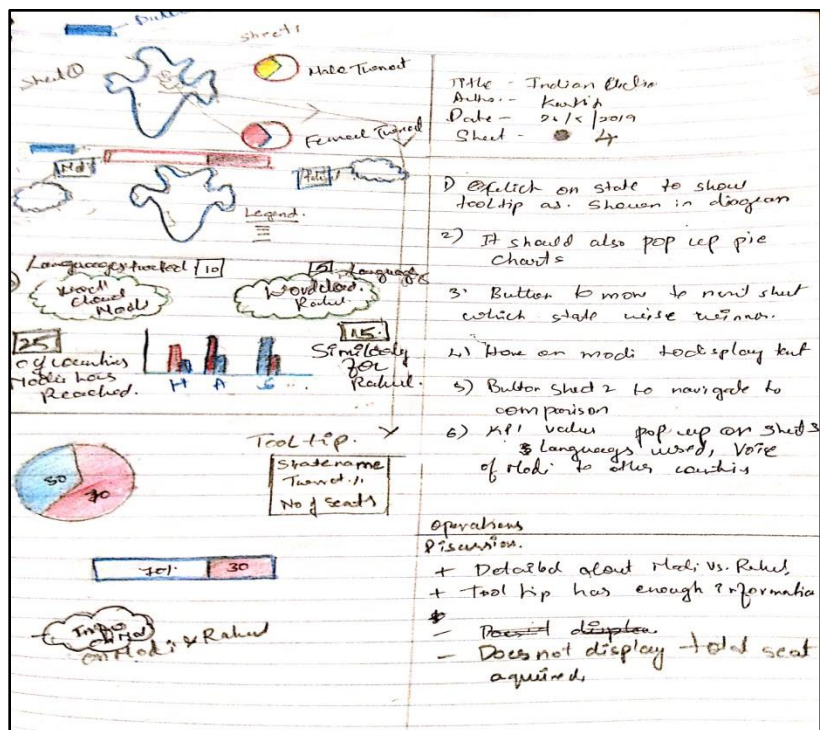 Sheet 1
Sheet ①
Male Turnout
Female Turnout
Modi
Legend.
Languages tweeted 10
5 Languages
Word
Cloud
Modi
Wordcloud
Rahul.
25
of countries
Modi has
Reached.
H A S ...
15
Similarly
for
Rahul.
50
70
Tooltip.
Statename
Turnout %
No of Seats
70%
30
on Modi & Rahul
Title - Indian Election
Autho. - Kartik
Date - /2019
Sheet - 4
click on state to show
tooltip as. shown in diagram
2) It should also pop up pie
charts
3. Button to move to next sheet
which state wise winner.
4) Hove on modi to display text
5) Button Sheet 2 to navigate to
comparison
6) KPI value pop up on sheet 3
Languages used, Voice
of Modi to other countries
Operations
Discussion.
+ Detailed about Modi Vs. Rahul
+ Tool tip has enough information
- Does not display total seat
aquired